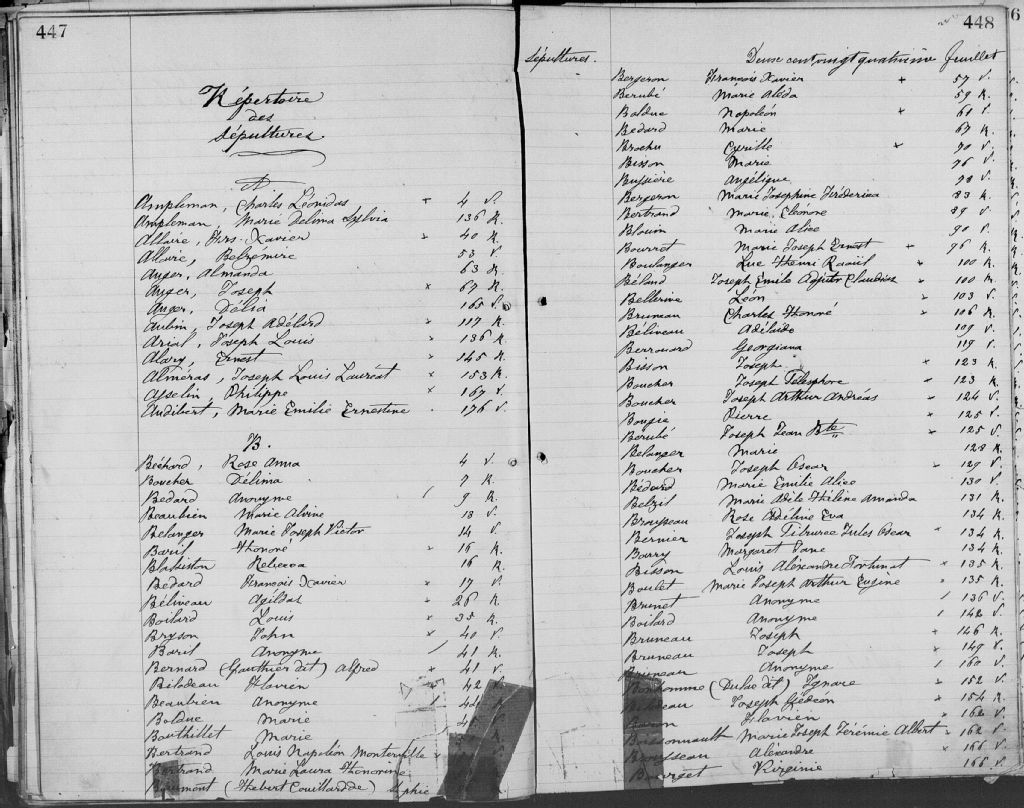 447
Répertoire
des
Sépultures.
A
Ampleman, Charles Léonidas + 4 V.
Ampleman, Marie Delima Sylvia 136 R.
Allaire, Frs. Xavier x 40 R.
Allaire, Belzémire 53 V.
Auger, Almanda 63 R.
Auger, Joseph x 67 R.
Auger, Délia 165 V.
Aubin, Joseph Adélard x 117 R.
Arial, Joseph Louis x 136 R.
Alary, Ernest x 145 R.
Alméras, Joseph Louis Lauréat x 153 R.
Asselin, Philippe x 167 V.
Audibert, Marie Emilie Ernestine 176 V.
B.
Béchard, Rose Anna 4 V.
Boucher Délima 7 R.
Bedard Anonyme / 9 R.
Beaubien Marie Alvine 13 V.
Belanger Marie Joseph Victor 14 V.
Baril Honoré x 16 R.
Blakiston Rebecca 16 R.
Bedard François Xavier x 17 V.
Béliveau Agildas x 26 R.
Boilard Louis x 35 R.
Bryson John x 40 V.
Baril Anonyme / 41 R.
Bernard (Gauthier dit) Alfred x 41 V.
Bilodeau Flavien x 42 V.
Beaubien Anonyme 44 R.
Bolduc Marie 45 V.
Bouthillet Marie
Bertrand Louis Napoléon Monterville
Bertrand Marie Laura Honorine
Beaumont (Hebert Couillard de) Sophie
448
Sépultures. Deuse cent vingt quatrième feuillet
Bergeron François Xavier + 57 V.
Berubé Marie Aléda 59 R.
Bolduc Napoléon + 61 V.
Bedard Marie 67 R.
Brochu Cyrille x 70 V.
Bisson Marie 76 V.
Bussière Angélique 78 V.
Bergeron Marie Josephine Fréderica 83 R.
Bertrand Marie, Eléonore 89 V.
Blouin Marie Alice 90 V.
Bourret Marie Joseph Ernest x 96 R.
Boulanger Luc Henri Raoul x 100 R.
Béland Joseph Emile Adjutor Claudias x 100 R.
Bellerive Léon x 103 V.
Bruneau Charles Honoré x 106 R.
Béliveau Adélaide 109 V.
Berrouard Georgiana 119 V.
Bisson Joseph x 123 R.
Boucher Joseph Télesphore x 123 R.
Boucher Joseph Arthur Andréas x 124 V.
Bougie Pierre x 125 V.
Berubé Joseph Jean Bte x 125 V.
Belanger Marie 128 R.
Boucher Joseph Oscar x 129 V.
Bédard Marie Emilie Alice 130 V.
Belzil Marie Adèle Hélène Amanda 131 R.
Brousseau Rose Adéline Eva 134 R.
Bernier Joseph Tiburce Jules Oscar x 134 R.
Barry Margaret Jane 134 R.
Bisson Louis Alexandre Fortunat x 135 R.
Boulet Marie Joseph Arthur Eugène x 135 R.
Brunet Anonyme / 136 V.
Boilard Anonyme / 142 V.
Bruneau Joseph x 146 R.
Bruneau Joseph x 149 V.
Bruneau Anonyme / 160 V.
Bonhomme (Dulac dit) Ignace x 152 V.
Bilodeau Joseph Gédéon x 154 R.
Baron Flavien x 162 V.
Boissonnault Marie Joseph Jérémie Albert x 162 V.
Brousseau Alexandre x 166 V.
Bourget Virginie 166 V.